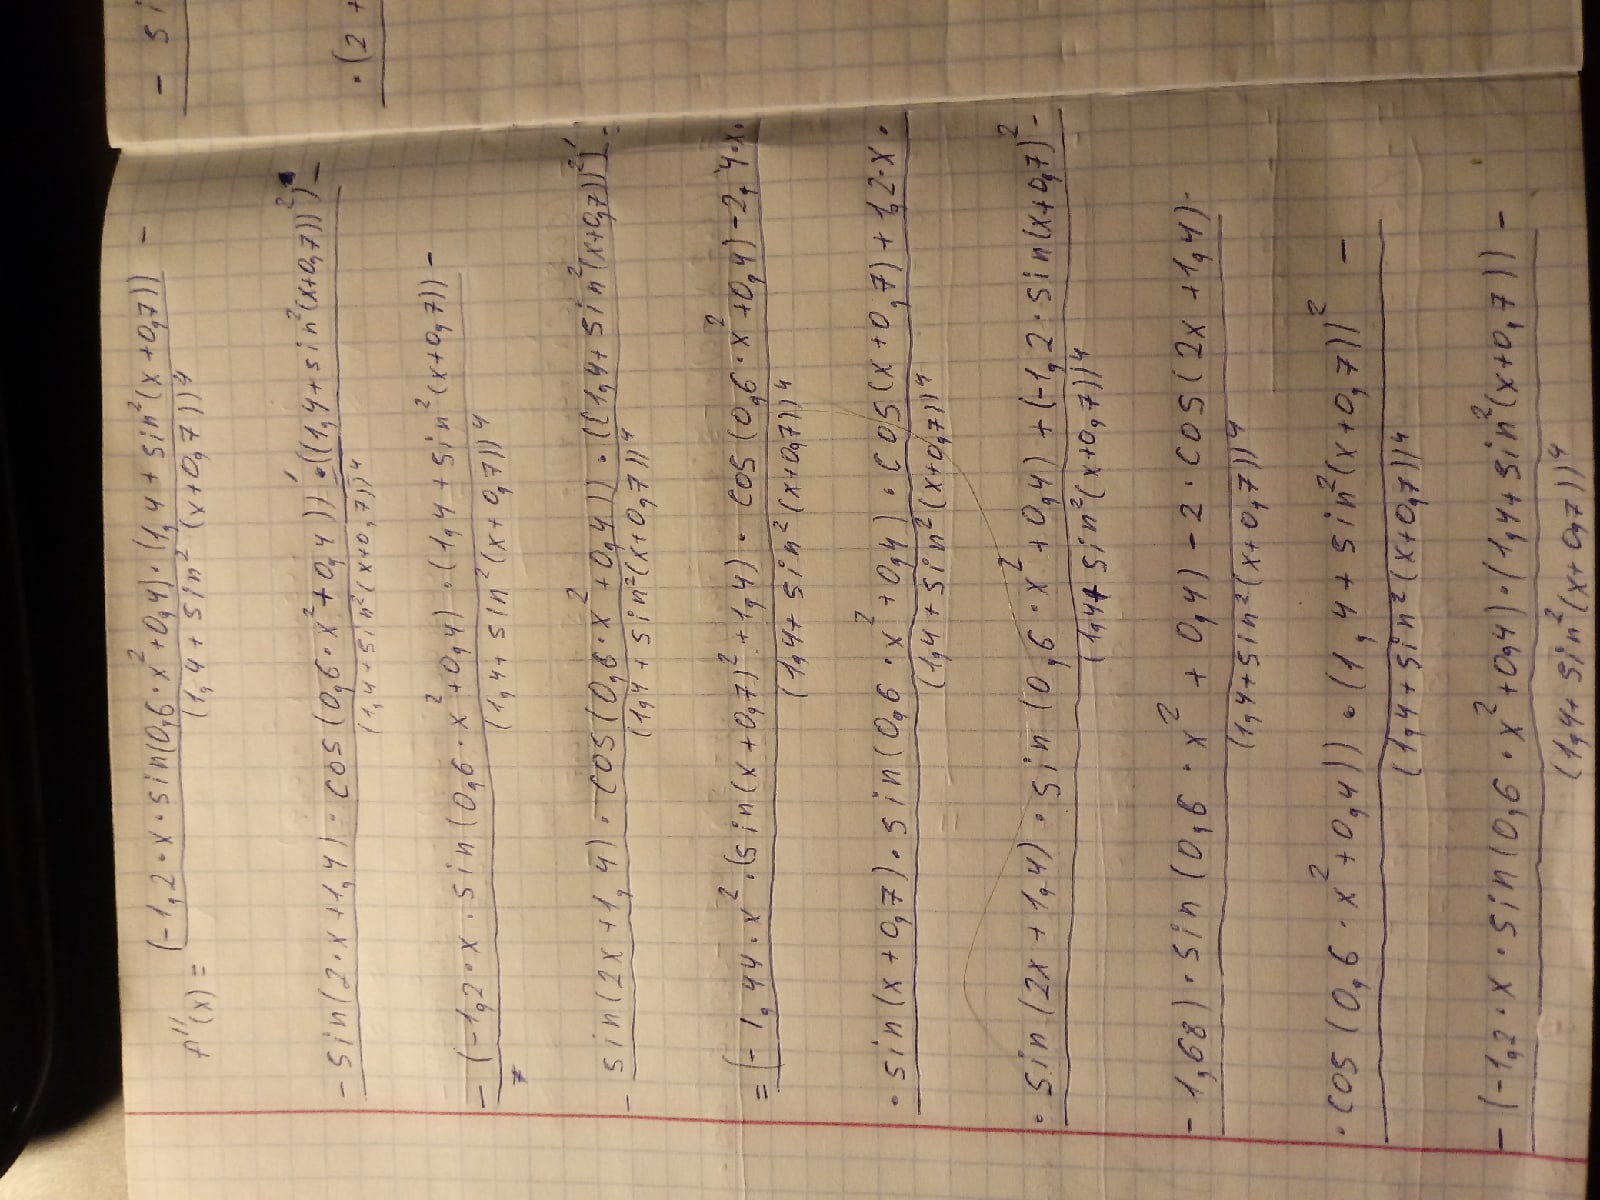 f''(x) = (-1,2·x·sin(0,6·x²+0,4)·(1,4+sin²(x+0,7)) -
(1,4+sin²(x+0,7))⁴
- sin(2·x+1,4)·cos(0,6·x²+0,4))'·((1,4+sin²(x+0,7))²) -
(1,4+sin²(x+0,7))⁴
- (-1,2·x·sin(0,6·x²+0,4)·(1,4+sin²(x+0,7)) -
(1,4+sin²(x+0,7))⁴
- sin(2x+1,4)·cos(0,6·x²+0,4))·((1,4+sin²(x+0,7))²)'
(1,4+sin²(x+0,7))⁴
= (-1,44·x²·(sin(x+0,7)²+1,4)·cos(0,6·x²+0,4)-2,4·x·
(1,4+sin²(x+0,7))⁴
·sin(x+0,7)·sin(0,6·x²+0,4)·cos(x+0,7)+1,2·x·
(1,4+sin²(x+0,7))⁴
·sin(2x+1,4)·sin(0,6·x²+0,4)+(-1,2·sin(x+0,7)²-
(1,4+sin²(x+0,7))⁴
-1,68)·sin(0,6·x²+0,4)-2·cos(2x+1,4)·
(1,4+sin²(x+0,7))⁴
·cos(0,6·x²+0,4))·(1,4+sin²(x+0,7))² -
(1,4+sin²(x+0,7))⁴
- (-1,2·x·sin(0,6·x²+0,4)·(1,4+sin²(x+0,7)) -
(1,4+sin²(x+0,7))⁴
- si
·(2+